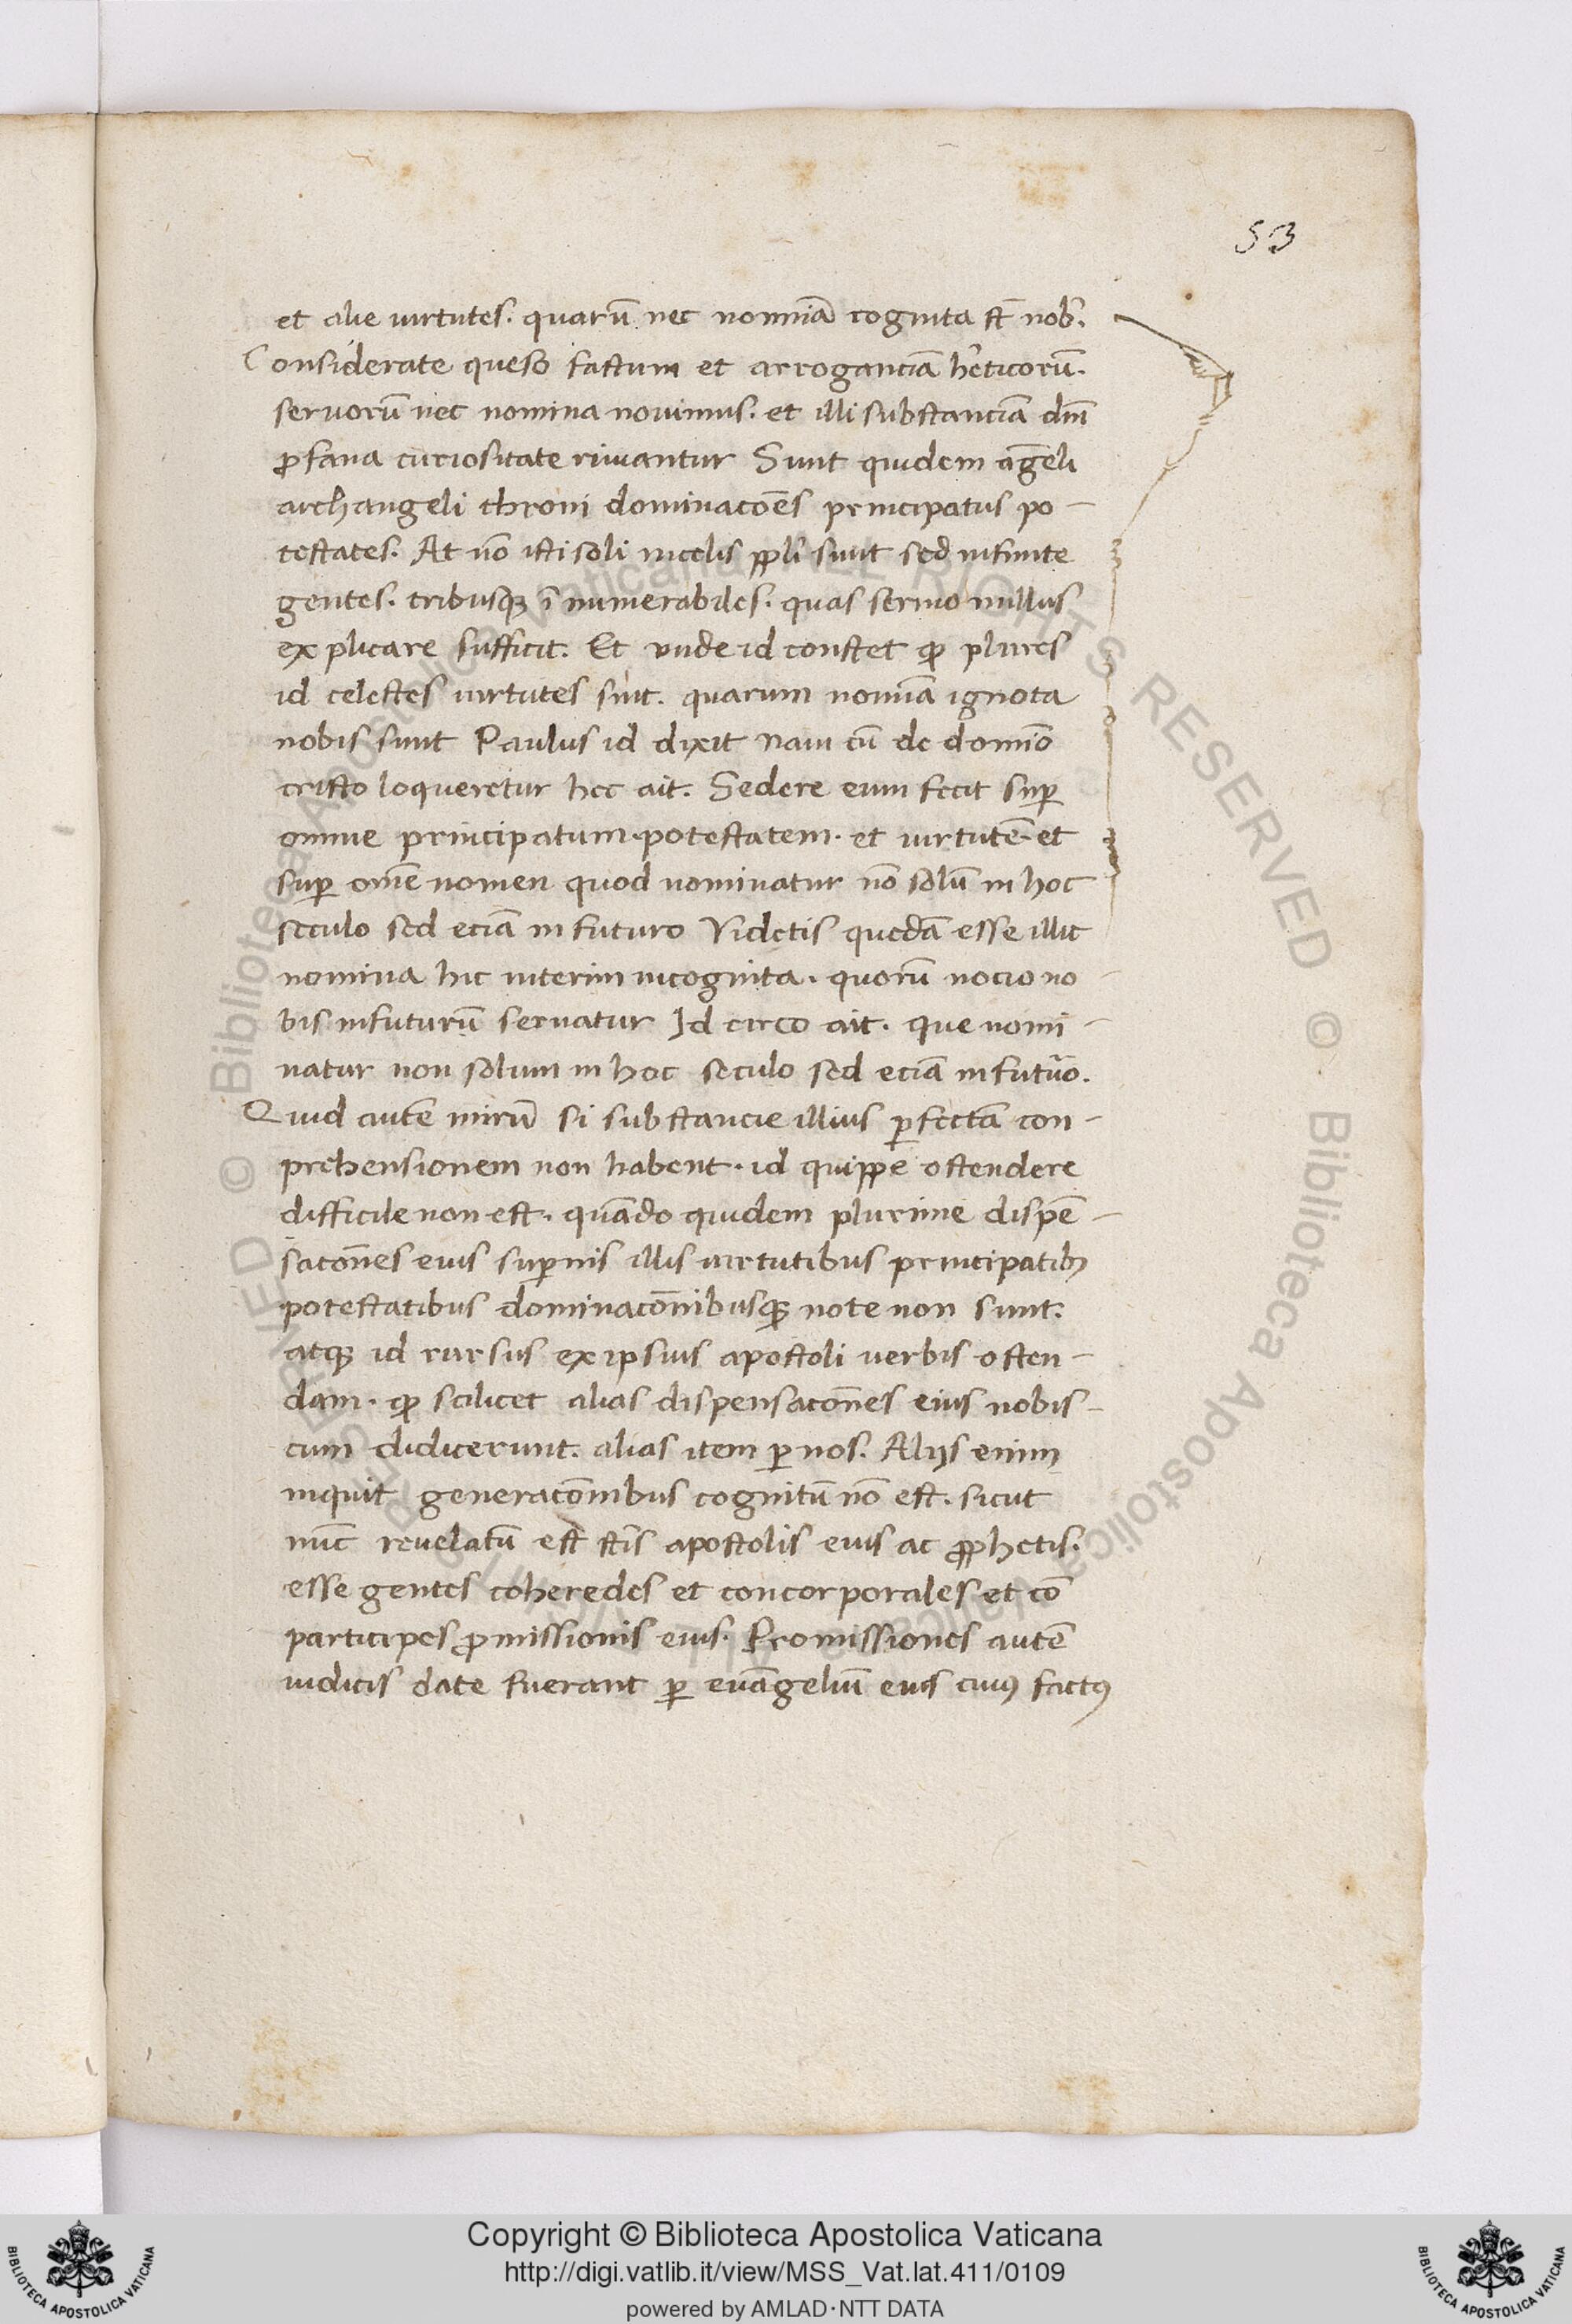 53
et alie uirtutes. quarū nec nominā cognita st̄ nob̄.
Considerate queso factum et arroganciā hēticorū.
seruorū nec nomina nouimus. et illi substanciā dn̄i
ꝓfana curiositate rimantur Sunt quidem āgeli
archangeli throni dominacōes principatus po-
testates. At nō isti soli in celis pp̄li sunt sed infinite
gentes. tribusqꝫ ī numerabiles. quas sermo nullus
explicare sufficit. Et unde id constet ꝙ plures
id celestes uirtutes sint. quarum nomīa ignota
nobis sunt Paulus id dixit Nam cū de domīo
cristo loqueretur hec ait. Sedere eum fecit suꝑ
omne principatum. potestatem. et uirtutē. et
suꝑ om̄e nomen quod nominatur nō solū in hoc
seculo sed eciā in futuro Videtis quedā esse illic
nomina hic interim incognita. quorū nocio no-
bis in futurū seruatur Id circo ait. que nomi-
natur non solum in hoc seculo sed eciā in futuro.
Quid autē mirū si substancie illius ꝑfectā con-
prehensionem non habent. id quippe ostendere
difficile non est. quādo quidem plurime dispē-
sacōnes eius suꝑnis illis uirtutibus principatibꝫ
potestatibus dominacōnibusqꝫ note non sunt.
atqꝫ id rursus ex ipsius apostoli uerbis osten-
dam. ꝙ scilicet alias dispensacōnes eius nobis-
cum didicerunt. alias item ꝑ nos. Alijs enim
inquit generacōnibus cognitū nō est. sicut
nūc reuelatū est st̄is apostolis eius ac ꝓphetis.
esse gentes coheredes et concorporales et cō
participes ꝓmissionis eius. Promissiones autē
iudicis date fuerant ꝑ euāgeliū eius cuiꝰ factꝰ
© Biblioteca Apostolica Vaticana ALL RIGHTS RESERVED
Copyright © Biblioteca Apostolica Vaticana
http://digi.vatlib.it/view/MSS_Vat.lat.411/0109
powered by AMLAD·NTT DATA
BIBLIOTECA APOSTOLICA VATICANA
BIBLIOTECA APOSTOLICA VATICANA